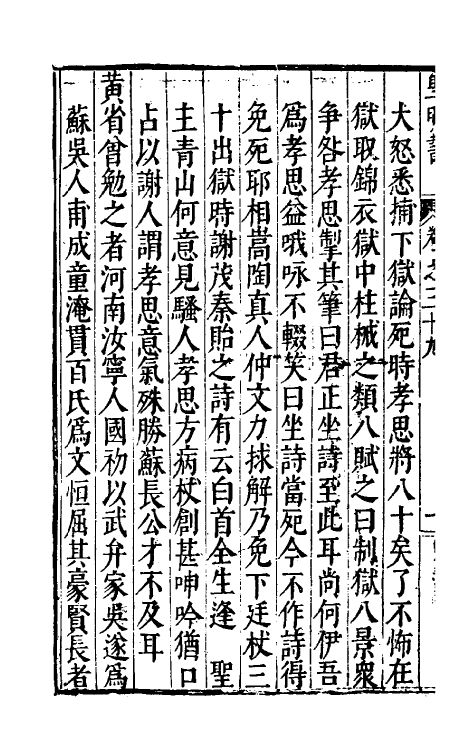 大怒悉捕下獄論死時孝思將八十矣了不怖在
獄取錦衣獄中柱械之類八賦之曰制獄八景衆
爭咎孝思掣其筆曰君正坐詩至此耳尚何伊吾
爲孝思益哦咏不輟笑曰坐詩當死今不作詩得
免死耶相嵩陶真人仲文力捄解乃免下廷杖三
十出獄時謝茂秦貽之詩有云白首全生逢 聖
主青山何意見騷人孝思方病杖創甚呻吟猶口
占以謝人謂孝思意氣殊勝蘇長公才不及耳
黄省曾勉之者河南汝寧人國初以武弁家吳遂爲
蘇吳人甫成童淹貫百氏爲文恒屈其豪賢長者
卷之三十九